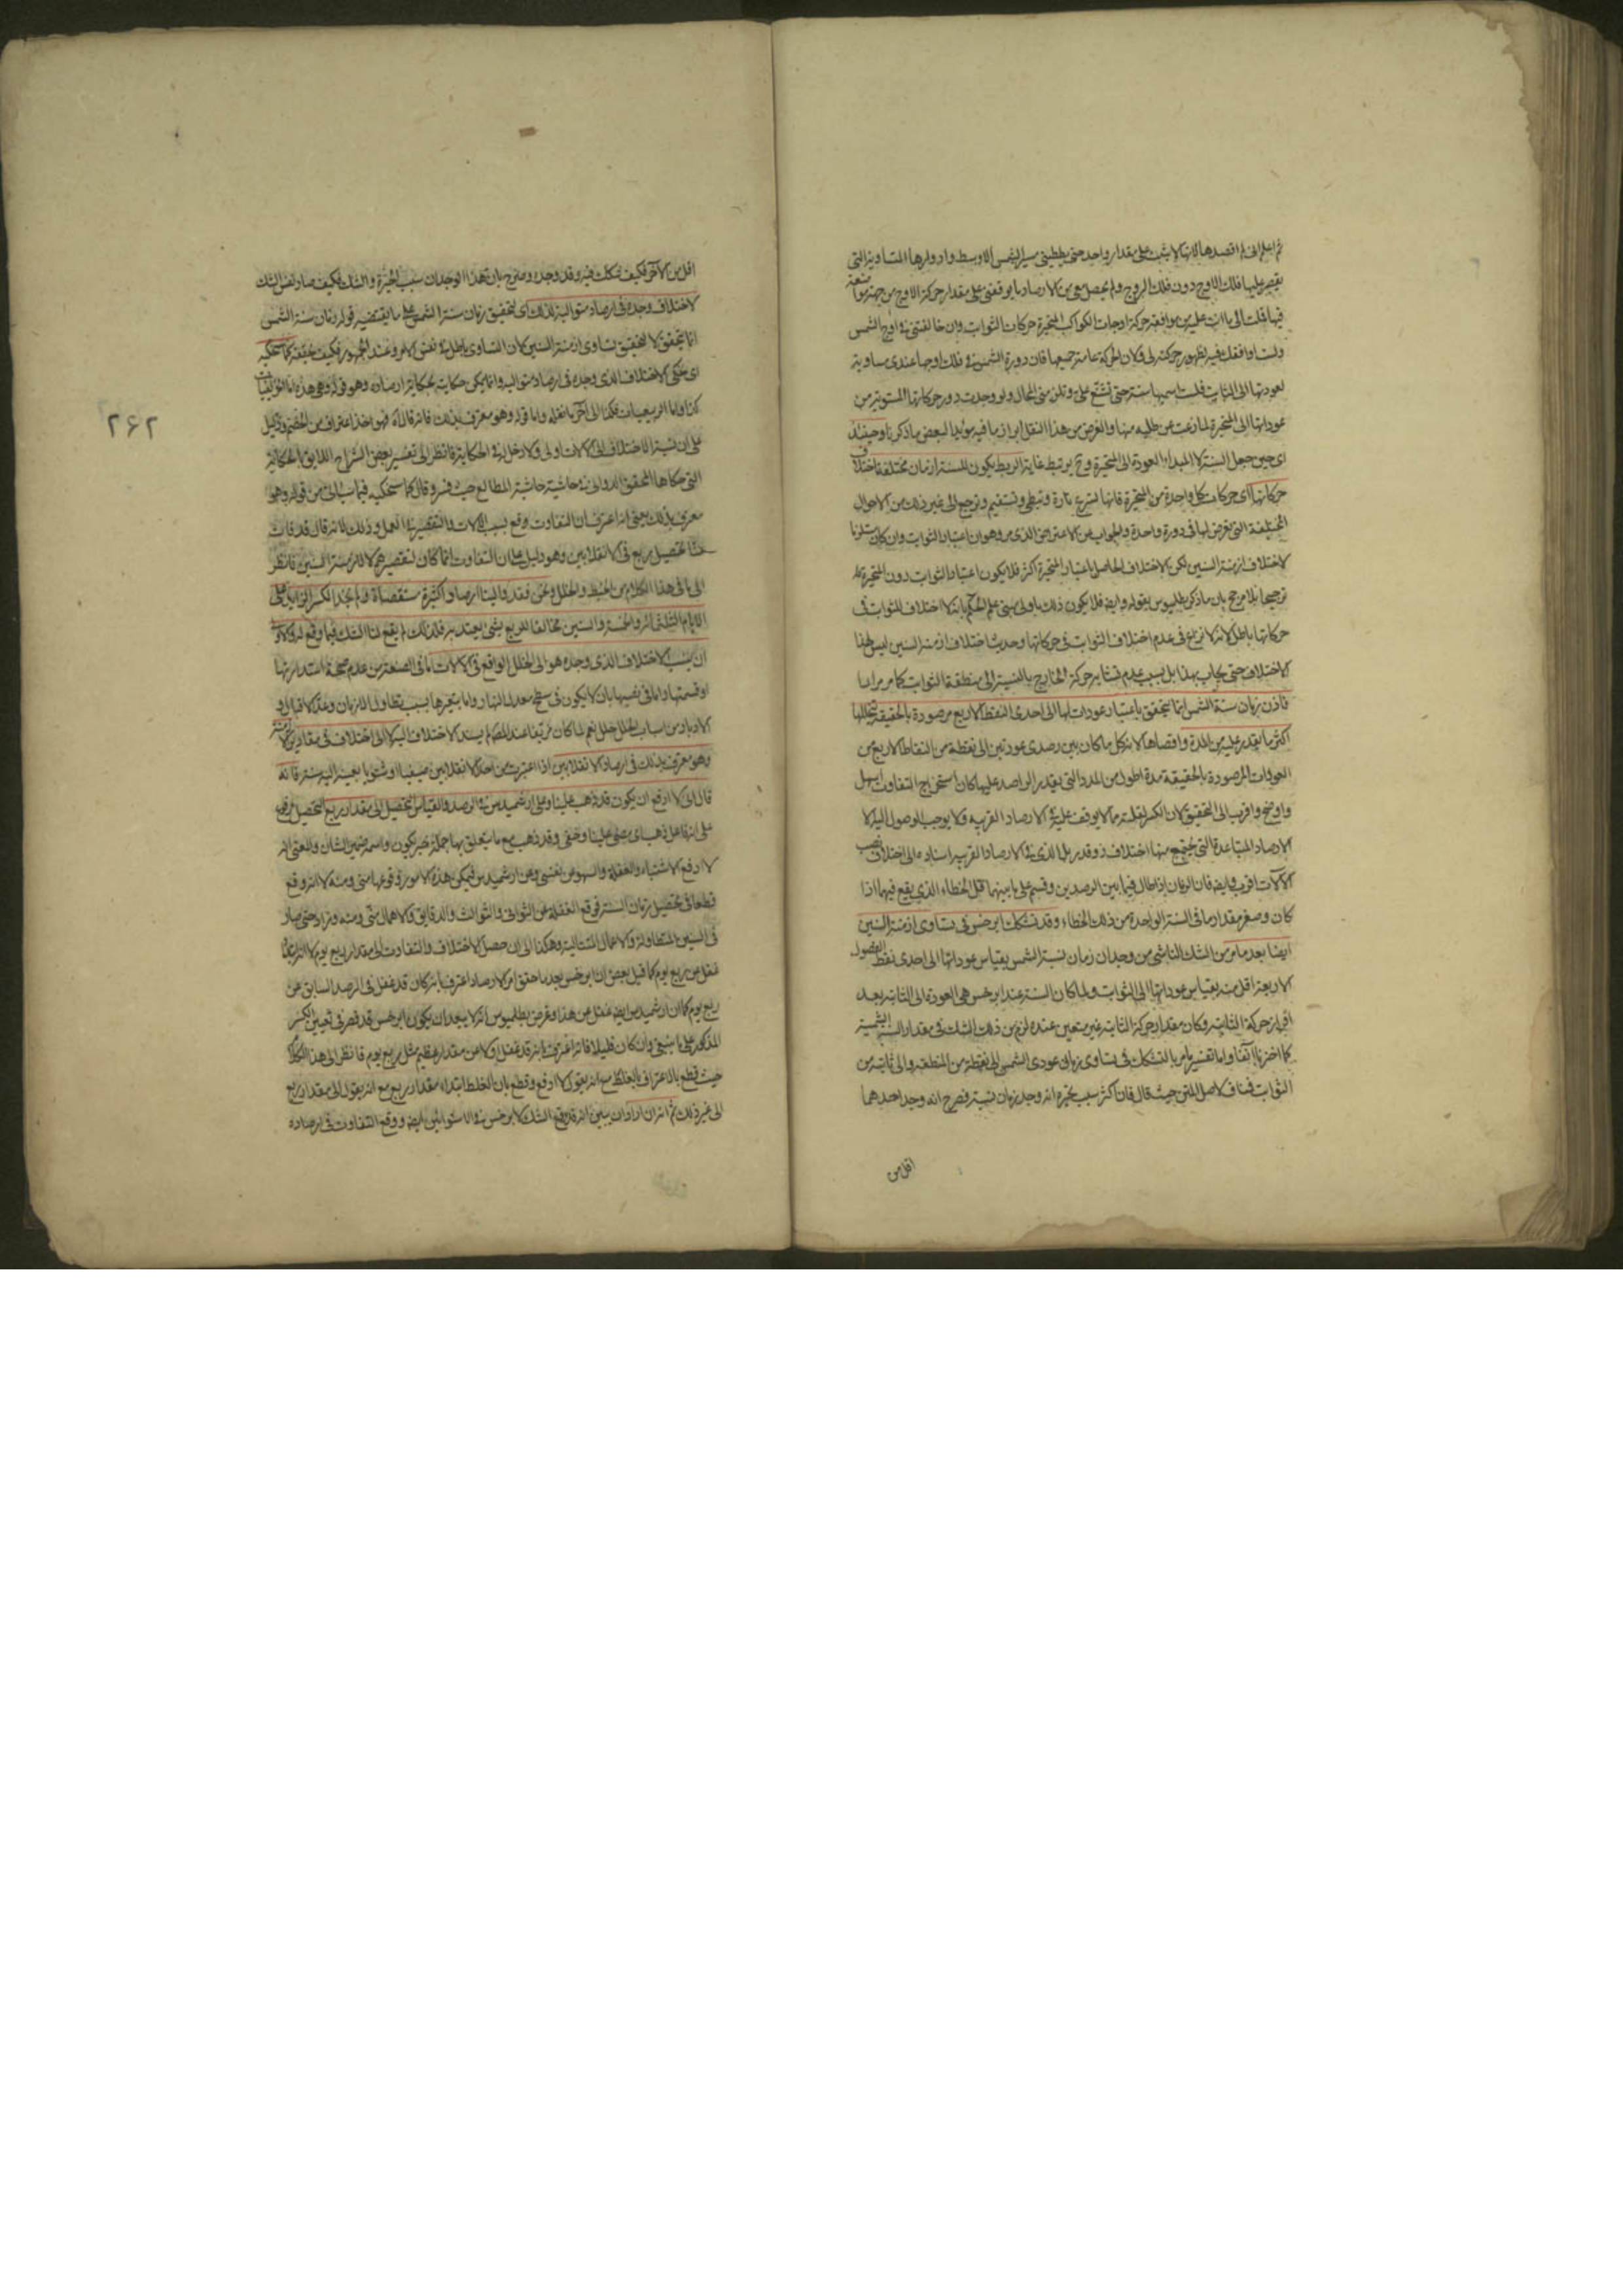 ثم اعلم انى لم اقصدها لانها لا يثبت على مقدار واحد حتى يطلبنى مسير الشمس الاوسط وادوارها المتساوية التى
يقصر عليها فلك الاوج دون فلك البروج ولم يحصل معى من الارصاد ما يوقفنى على مقدار حركة الاوج من جهة
فيها قلت الى ما انت عليه من موافقة حركة اوجات الكواكب المتحيرة حركات الثوابت وان خالفتنى فى اوج الشمس
ولست اوافقك فيه لظهور حركته لى ولان الحركة عامة جميعها فان دورة الشمس فى فلك اوجها عندى مساوية
لعودتها الى الثابت فلست اسميها سنة حتى تشنع على وتلزمنى المحال ولو وجدت دور حركاتها المستوية من
عوداتها الى المتحيرة لما رغبت عن طلبه منها والغرض من هذا النقل ابراز ما فيه مؤيدا لبعض ما ذكرنا وحينئذ
اى حين جعل السنة لا المبداء العودة الى المتحيرة وح يرتبط غاية الربط يكون للسنة ازمان مختلفة لاختلاف
حركاتها اى حركات كل واحدة من المتحيرة فانها تسرع تارة وتبطئ وتستقيم وترجع الى غير ذلك من الاحوال
المختلفة التى تعرض لها فى دورة واحدة والجواب عن الاعتراض الذى مر وهو ان اعتبار الثوابت وان كان مستلزما
لاختلاف ازمنة السنين لكن الاختلاف الحاصل باعتبار المتحيرة اكثر فلا يكون اعتبار الثوابت دون المتحيرة
ترجيحا بلا مرجح بان ما ذكره بطلميوس بقوله وايضا فلا يكون ذلك باولى مبنى على الحكم بانه لا اختلاف للثوابت فى
حركاتها باطل لانه لا نزاع فى عدم اختلاف الثوابت فى حركاتها وحديث اختلاف ازمنة السنين ليس لهذا
الاختلاف حتى يجاب بهذا بل بسبب عدم تشابه حركة الخارج بالنسبة الى منطقة الثوابت كما مر مرارا
فاذن زمان سنة الشمس انما يتحقق باعتبار عودات لها الى احدى النقط الاربع مرصودة بالحقيقة يتخللها
اكثر ما يقدر عليه من المدة واقصاها لان كل ما كان بين رصدى عودتين الى نقطة من النقاط الاربع من
العودات المرصودة بالحقيقة مدة اطول من المدد التى يقدر الراصد عليها كان استخراج التفاوت اسهل
واوضح واقرب الى التحقيق لان الكسر لقلته مما لا يوقف عليه فى الارصاد القريبة ولا يوجب الوصول اليه الا
الارصاد المتباعدة التى يجتمع منها اختلاف ذو قدر بل الذى فى الارصاد القريبة اسناده الى اختلاف نصب
الآلات اقرب وايضا فان الزمان اذا طال فيما بين الرصدين وقسم على ما بينهما قل الخطاء الذى يقع فيهما اذا
كان وصغر مقدار ما فى السنة الواحدة من ذلك الخطاء وقد تشكك ابرخس فى تساوى ازمنة السنين
ايضا بعد ما مر من الشك الناشى من وجدان زمان سنة الشمس بقياس عوداتها الى احدى نقط الفصول
الاربعة اقل منه بقياس عوداتها الى الثوابت ولما كان السنة عند ابرخس هى العودة الى الثابتة بعد
اقراره حركة الثابتة وكان مقدار حركة الثابتة غير متعين عنده لزم من ذلك الشك فى مقدار السنة الشمسية
كما اخبرنا آنفا واما تفسير ما مر بالتشكك فى تساوى زمانى عودى الشمس الى نقطة من المنطقة والى ثابتة من
الثوابت فمناف لاصل المتن حيث قال فان اكثر سبب تحيره انه وجد زمان سنة فصرح انه وجد احدهما
اقل من
٢٦٢
اقل من الآخر فكيف تشكك فيه وقد وجده وصرح بان هذا الوجدان سبب الحيرة والشك فكيف صار نفس الشك
لاختلاف وجده فى ارصاد متوالية لذلك اى لتحقيق زمان سنة الشمس على ما يقتضيه قوله زمان سنة الشمس
انما يتحقق لا لتحقيق تساوى ازمنة السنين لان التساوى باطل فى نفس الامر وعند الجمهور فكيف حقيقته كما سنحكيه
اى نحكى الاختلاف الذى وجده فى ارصاد متوالية وانما يمكن حكايته بحكاية ارصاده وهو قوله وهى هذه
كذا واما الربيعيات فكذا الى آخر ما نقله واما قوله وهو معترف بذلك فانه قال آه فهو اخذ اعتراف من الخصم ودليل
على ان نسبة الاختلاف الى الآلات اولى ولا دخل له فى الحكاية فانظر الى تفسير بعض الشراح اللايق بالحكاية
التى حكاها المحقق الدوانى فى حاشية حاشية المطالع حيث فسر وقال كما سنحكيه فيما سياتى من قوله وهو
معترف بذلك يعنى انه اعترف بان التفاوت وقع بسبب الآلات والتقصير فى العمل وذلك لانه قال قد فات
منا تحصيل ربع فى الانقلابين وهو دليل على ان التفاوت انما كان لتقصيرهم لا لازمنة السنين فانظر
الى ما فى هذا الكلام من الخبط والخلل ونحن فقد والينا ارصادا كثيرة مستقصاة فلم نجد الكسر الزايد على
الايام الثلثمائة والخمسة والستين مخالفا للربع بشئ يعتد به فلذلك لم يقع لنا الشك فيما وقع له والاولى
ان ينسب الاختلاف الذى وجده هو الى الخلل الواقع فى الآلات اما فى الصنعة من عدم صحة استدارتها
او قسمتها واما فى نصبها بان لا يكون فى سطح معدل النهار واما بتغيرها بسبب تطاول الازمان وعد الاقبال و
الادبار من اسباب الخلل خلل نعم لما كان مزيفا عند المص لم يسند الاختلاف اليه لا الى اختلاف فى مقادير الازمنة
وهو معترف بذلك فى ارصاد الانقلابين اذا اعتبرت من احد الانقلابين صيفيا او شتويا بعينه اليه سنة فانه
قال انى لا ادفع ان يكون قد ذهب علينا وعلى ارشميدس فى الرصد والقياس لتحصيل الى مقدار ربع التحصيل مرفوع
على انه فاعل ذهب اى مضى علينا وخفى وقد ذهب مع ما يتعلق بها جملة خبر يكون واسمه ضمير الشان والمعنى انه
لا ادفع الاشتباه والغفلة والسهو من نفسى وعن ارشميدس فيمكن هذه الامور وقوعها منى ومنه لا انه وقع
قطعا فى تحصيل زمان السنة فوقع الغفلة عن الثوانى والثوالث والدقايق والاهمال منى ومنه وزاد حتى صار
فى السنين المتطاولة والاعمال المتتالية وهكذا الى ان حصل الاختلاف والتفاوت الى مقدار ربع يوم لا انه
غفل عن ربع يوم كما قيل بعض ان ابرخس بعد ما حقق امر الارصاد اعترف بانه كان قد غفل فى الرصد السابق عن
ربع يوم كما ان ارشميدس ايضا غفل عن هذا وغرض بطلميوس انه لا يبعد ان يكون ابرخس قد قصر فى تعيين الكسر
المذكور على ما ينبغى وان كان قليلا فانه اعترف بانه قد غفل اولا عن مقدار عظيم مثل ربع يوم فانظر الى هذا الكلام
حيث قطع بالاعتراف بالغلط مع انه يقول لا ادفع وقطع بان الغلط ابتداء مقدار ربع مع انه يقول الى مقدار ربع
الى غير ذلك ثم انه ان اراد ان يبين انه قد وقع الشك لابرخس فى الاستوائين ايضا ووقع التفاوت فى ارصاده